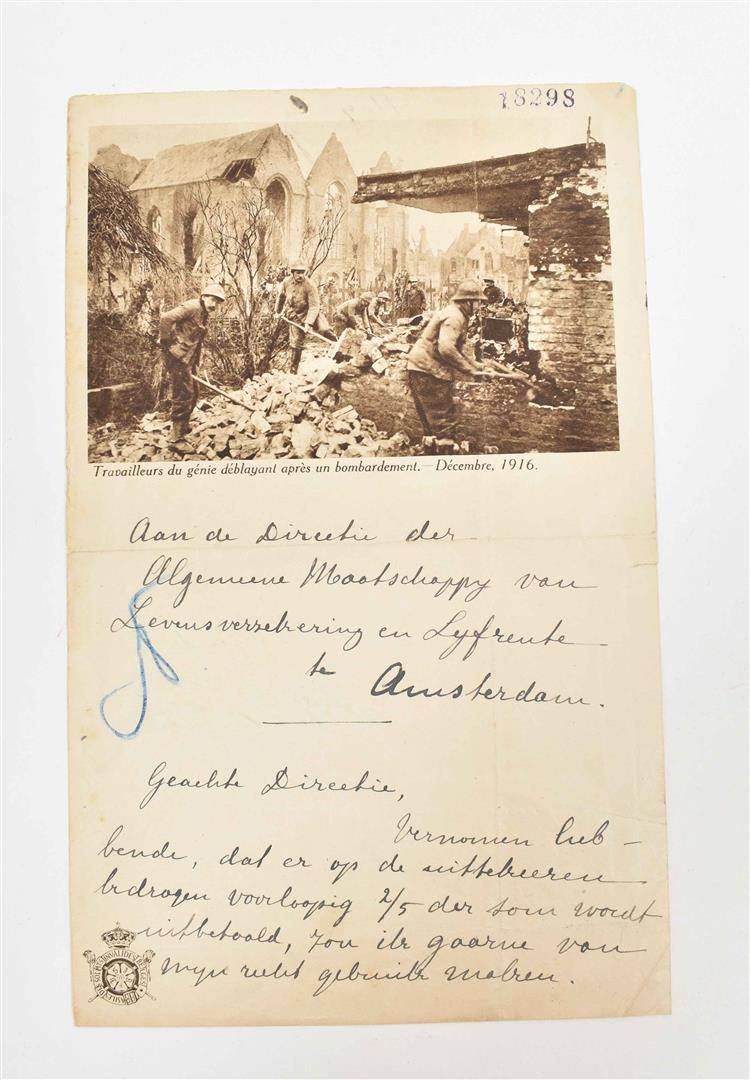 18298
Travailleurs du génie déblayant après un bombardement.—Décembre, 1916.
Aan de Directie der
Algemeene Maatschappy van
Levensverzekering en Lyfrente
te Amsterdam.
Geachte Directie,
Vernomen heb-
bende, dat er op de uittekeeren
bedragen voorloopig 2/5 der som wordt
uitbetaald, zou ik gaarne van
myn recht gebruik maken.